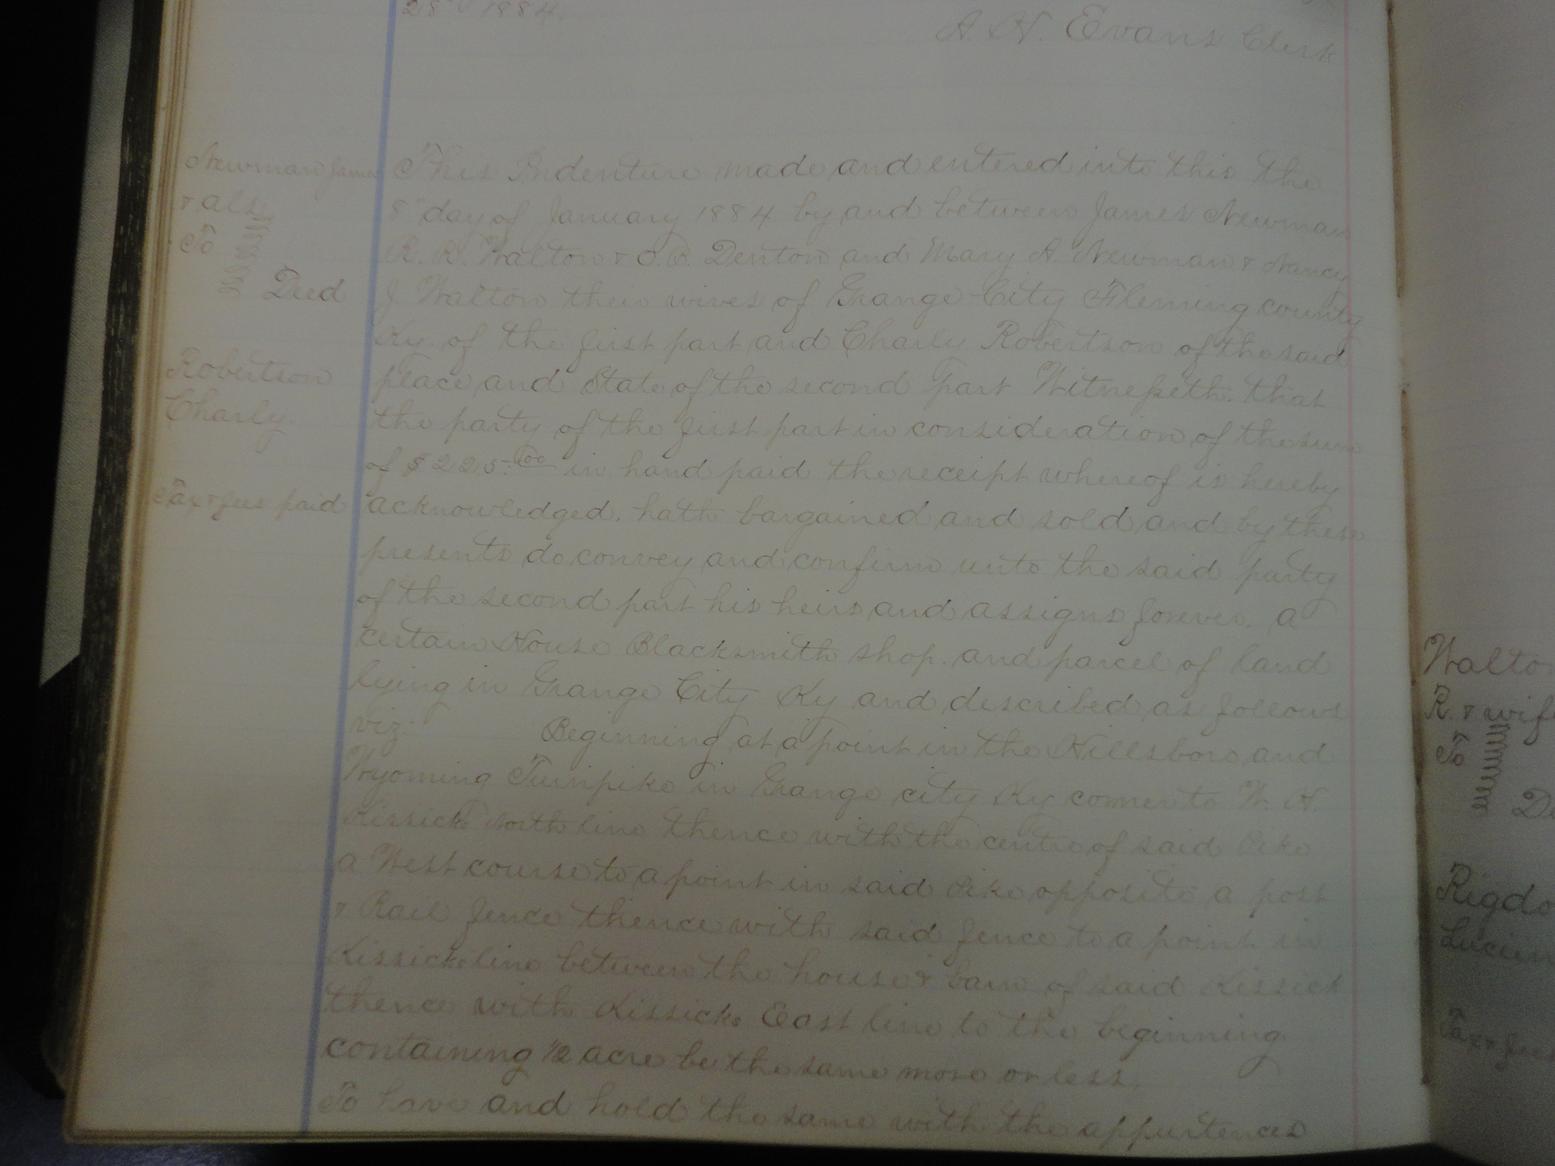 28" 1884.
A. H. Evans Clerk
Newman James
& als
To
Deed
Robertson
Charly.
Tax & fees paid
This Indenture made and entered into this the
8" day of January 1884 by and between James Newman
R. R. Walton & O. B. Denton and Mary A. Newman & Nancy
J Walton their wives of Grange City Fleming county
Ky. of the first part and Charly Robertson of the said
place and State of the second part Witnesseth: that
the party of the first part in consideration of the sum
of $225.00 in hand paid the receipt whereof is hereby
acknowledged, hath bargained and sold and by these
presents do convey and confirm unto the said party
of the second part his heirs and assigns forever. a
certain House Blacksmith shop. and parcel of land
lying in Grange City Ky and described as follows
viz: Beginning at a point in the Hillsboro and
Wyoming Turnpike in Grange city Ky corner to W. H.
Kissicks North line thence with the centre of said Pike
a West course to a point in said Pike opposite a post
& Rail fence thence with said fence to a point in
Kissicks line between the house & barn of said Kissick
thence with Kissicks East line to the beginning
containing 1/2 acre be the same more or less.
To have and hold the same with the appurtences
Walto
R. & wif
To
De
Rigdo
Lucien
Tax & fees